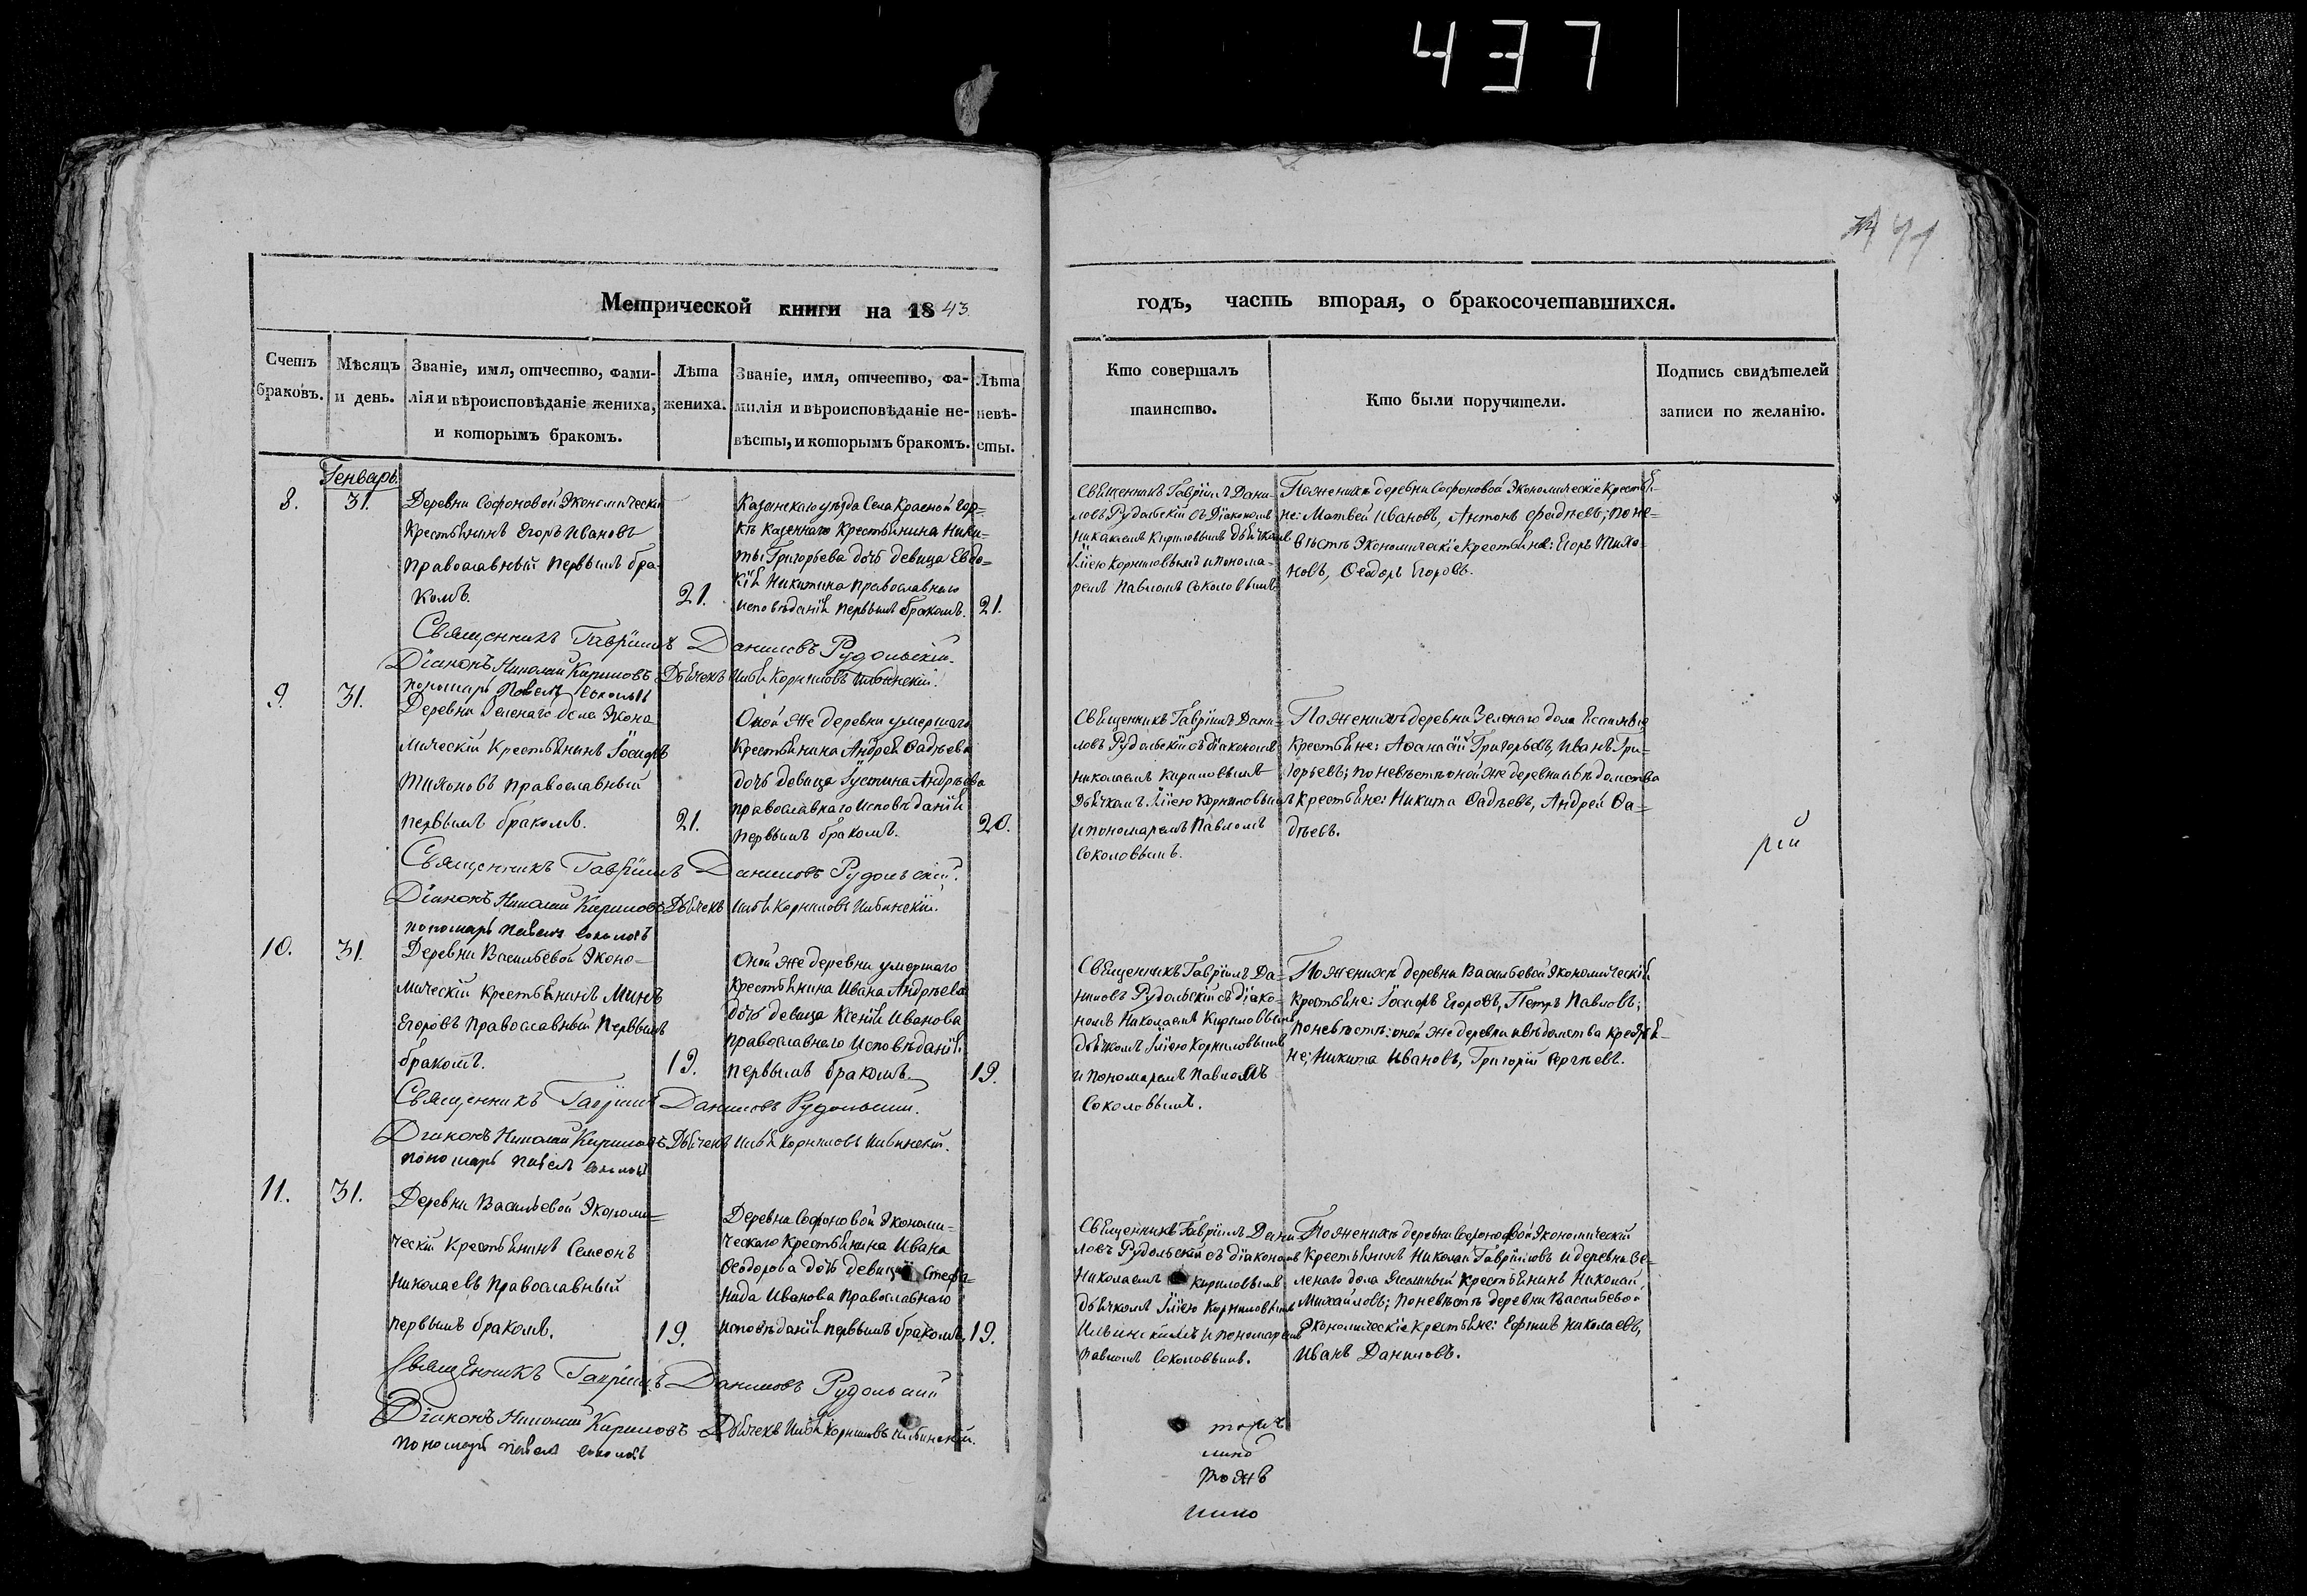 437
Метрической книги на 1843.
годъ, часть вторая, о бракосочетавшихся.
Счетъ браковъ.
Мѣсяцъ и день.
Званіе, имя, отчество, фами-
лія и вѣроисповѣданіе жениха,
и которымъ бракомъ.
Лѣта
жениха.
Званіе, имя, отчество, фа-
милія и вѣроисповѣданіе не-
вѣсты, и которымъ бракомъ.
Лѣта
невѣ-
сты.
Кто совершалъ
таинство.
Кто были поручители.
Подпись свидѣтелей
записи по желанію.
Генварь
8.
31.
Деревни Софоновой Экономически
Крестьянинъ Егоръ Ивановъ
православный первымъ бра-
комъ.
21.
Казанскаго уѣзда Села Красной Гор-
ки казеннаго крестьянина Ники-
ты Григорьева дочь девица Евдо=
кія Никитина православнаго
исповѣданія первымъ бракомъ.
21.
Священникъ Гавріилъ Дани-
ловъ Рудольскій съ Діакономъ
Николаемъ Кириловымъ дьячкомъ
Иліею Корниловымъ и понома-
ремъ Павломъ Соколовымъ
По женихѣ деревни Софоновой Экономическіе крестья-
не: Матвей Ивановъ, Антонъ Фадѣевъ; по не=
вѣстѣ Экономическіе крестьяне: Егоръ Тихо-
новъ, Ѳеодоръ Егоровъ.
Священникъ Гавріилъ Даниловъ Рудольскій.
Діаконъ Николай Кириловъ Дьячекъ Илья Корниловъ Ильинскій.
пономарь Павелъ Соколовъ
9.
31.
Деревни Зеленаго дола Эконо
мическій Крестьянинъ Іосифъ
Тихоновъ православный
первымъ бракомъ.
21.
Оной же деревни умершаго
крестьянина Андрея Ѳадѣева
дочь девица Іустина Андрѣева
православнаго исповѣданія
первымъ бракомъ.
20.
Священникъ Гавріилъ Дани=
ловъ Рудольскій съ діакономъ
Николаемъ Кириловымъ
дьячкомъ Иліею Корниловымъ
и пономаремъ Павломъ
Соколовымъ.
По женихѣ деревни Зеленаго дола
крестьяне: Аѳанасій Григорьевъ, Иванъ Гри-
горьевъ; по невѣстѣ оной же деревни и вѣдомства
крестьяне: Никита Ѳадѣевъ, Андрей Ѳа=
дѣевъ.
рій
Священникъ Гавріилъ Даниловъ Рудольскій.
Діаконъ Николай Кириловъ Дьячекъ Илья Корниловъ Ильинскій.
пономарь Павелъ Соколовъ
10.
31.
Деревни Васильевой Эконо=
мическій крестьянинъ Минъ
Егоровъ православный первымъ
бракомъ.
19.
Оной же деревни умершаго
крестьянина Ивана Андрѣева
дочь девица Ксенія Иванова
православнаго исповѣданія
первымъ бракомъ.
19.
Священникъ Гавріилъ Да=
ниловъ Рудольскій съ діако-
номъ Николаемъ Кириловымъ
дьячкомъ Иліею Корниловымъ
и пономаремъ Павломъ
Соколовымъ.
По женихѣ деревни Васильевой Экономическія
крестьяне: Іосифъ Егоровъ, Петръ Павловъ;
по невѣстѣ: оной же деревни и вѣдомства крестья-
не; Никита Ивановъ, Григорій Сергѣевъ.
Священникъ Гавріилъ Даниловъ Рудольскій.
Діаконъ Николай Кириловъ Дьячекъ Илья Корниловъ Ильинскій.
пономарь Павелъ Соколовъ
11.
31.
Деревни Васильевой Экономи=
ческій крестьянинъ Семеонъ
Николаевъ православный
первымъ бракомъ.
19.
Деревни Софоновой Экономи-
ческаго крестьянина Ивана
Ѳеодорова дочь девица Стефа-
нида Иванова православнаго
исповѣданія первымъ бракомъ
19.
Священникъ Гавріилъ Дани
ловъ Рудольскій съ діакономъ
Николаемъ Кириловымъ
дьячкомъ Иліею Корниловымъ
Ильинскимъ и пономаремъ
Павломъ Соколовымъ.
По женихѣ деревни Софоновой Экономическій
крестьянинъ Николай Гавріиловъ и деревни Зе-
ленаго дола крестьянинъ Николай
Михайловъ; по невѣстѣ деревни Васильевой
Экономическіе крестьяне: Ефимъ Николаевъ,
Иванъ Даниловъ.
Священникъ Гавріилъ Даниловъ Рудольскій
Діаконъ Николай Кириловъ Дьячекъ Илья Корниловъ Ильинскій.
пономарь Павелъ Соколовъ